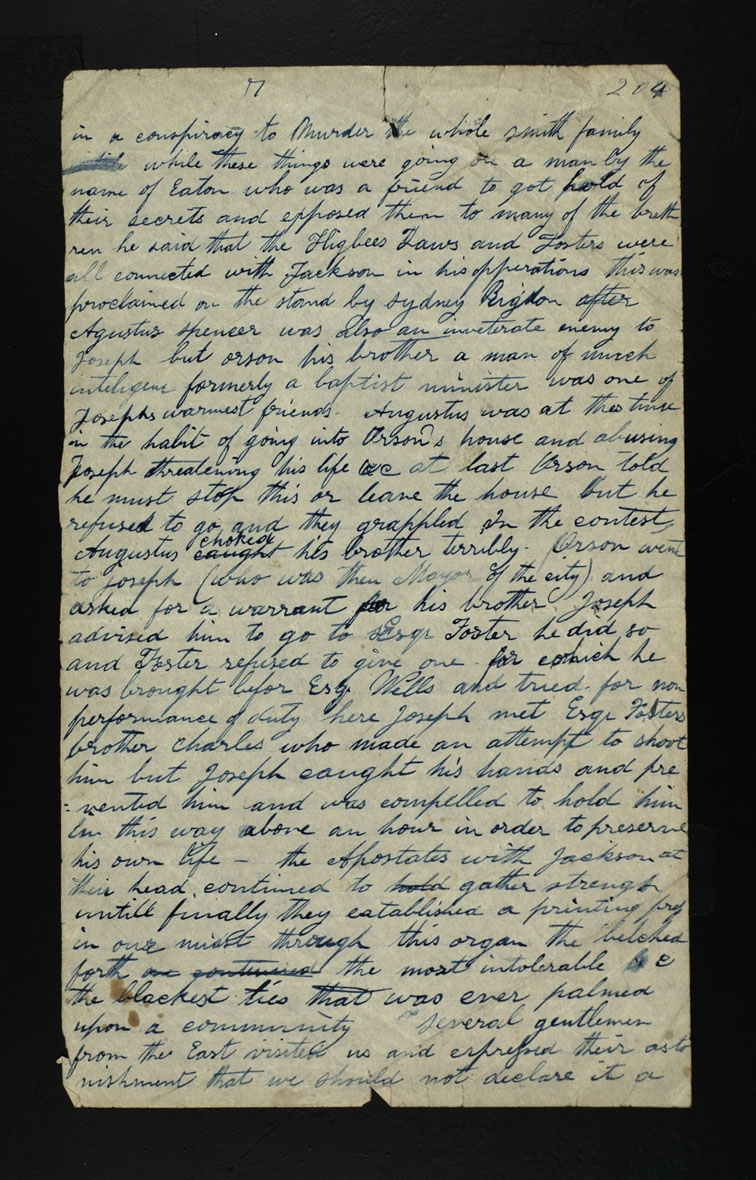 17 204
in a conspiracy to Murder the whole smith family
while these things were going on a man by the
name of Eaton who was a friend to got hold of
their secrets and epposed them to many of the breth
ren he said that the Higbees Laws and Fosters were
all connected with Jackson in his opperations this was
proclaimed on the stand by sydney Rigdon after
Agustus spencer was also an inveterate enemy to
Joseph but orson his brother a man of much
inteligene formerly a baptist minister was one of
Josephs warmest friends. Augustus was at this time
in the habit of going into Orson's house and abusing
Joseph threatening his life &c at last Orson told
he must stop this or leave the house but he
refused to go and they grappled In the contest
Augustus caught choked his brother terribly. Orson went
to Joseph (who was then Mayor of the city) and
asked for a warrant for his brother Joseph
advised him to go to Esqr Foster he did so
and Foster refused to give one for which he
was brought befor Esq. Wells and tried for non
performance of duty here Joseph met Esqr Fosters
brother charles who made an attempt to shoot
him but Joseph caught his hands and pre
=vented him and was compelled to hold him
in this way above an hour in order to preserve
his own life – the Apostates with Jackson at
their head continued to hold gather strength
untill finally they established a printing press
in our midst through this organ the belched
forth continued the most intolerable &c
the blackest lies that was ever palmed
upon a community several gentlemen
from the East visited us and expressed their asto
nishment that we should not declare it a